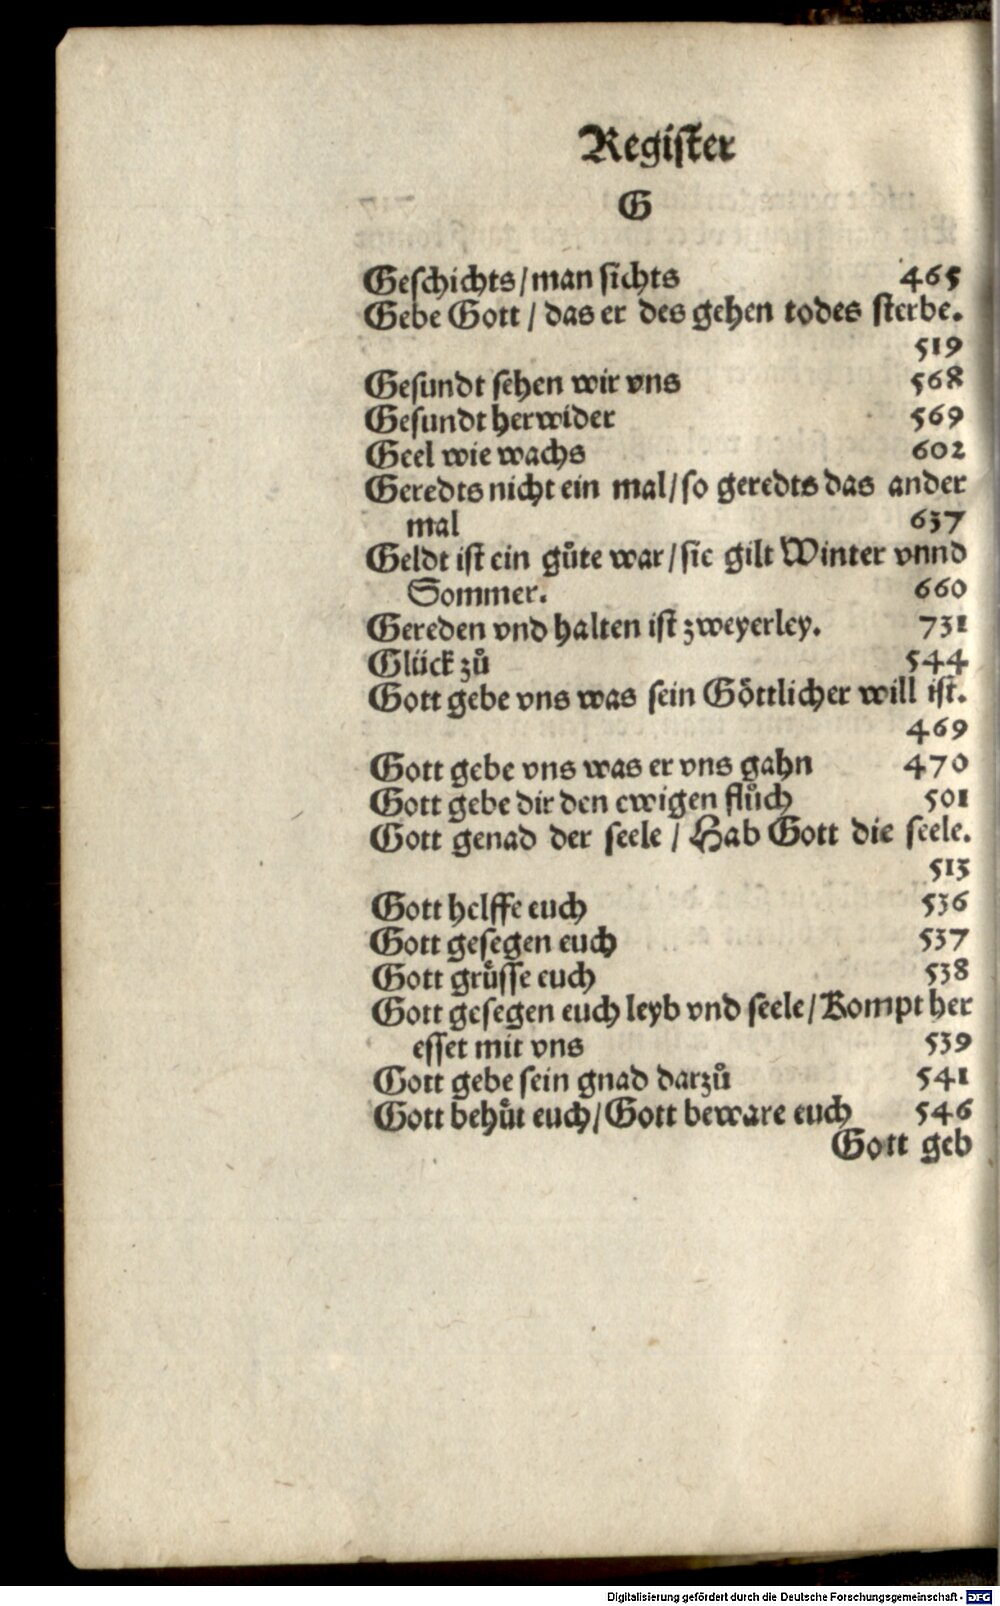 Register
G
Geschichts/man sichts 465
Gebe Gott / das er des gehen todes sterbe.
519
Gesundt sehen wir vns 568
Gesundt herwider 569
Geel wie wachs 602
Geredts nicht ein mal/so geredts das ander
mal 637
Geldt ist ein gůte war/sie gilt Winter vnnd
Sommer. 660
Gereden vnd halten ist zweyerley. 731
Glück zů 544
Gott gebe vns was sein Göttlicher will ist.
469
Gott gebe vns was er vns gahn 470
Gott gebe dir den ewigen flůch 501
Gott genad der seele / Hab Gott die seele.
513
Gott helffe euch 536
Gott gesegen euch 537
Gott grüsse euch 538
Gott gesegen euch leyb vnd seele/Kompt her
esset mit vns 539
Gott gebe sein gnad darzů 541
Gott behüt euch/Gott beware euch 546
Gott geb
Digitalisierung gefördert durch die Deutsche Forschungsgemeinschaft - DFG